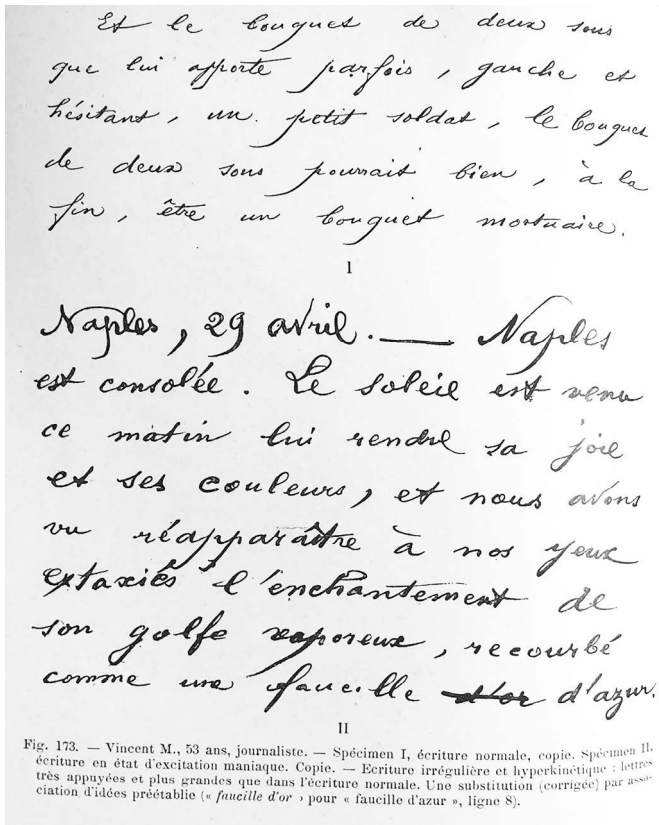 Et le bouquet de deux sous
que lui apporte parfois, gauche et
hésitant, un petit soldat, le bouquet
de deux sous pourrait bien, à la
fin, être un bouquet mortuaire.
I
Naples, 29 avril. — Naples
est consolée. Le soleil est venu
ce matin lui rendre sa joie
et ses couleurs, et nous avons
vu réapparaître à nos yeux
extasiés l'enchantement de
son golfe vaporeux, recourbé
comme une faucille d'or d'azur.
II
Fig. 173. — Vincent M., 53 ans, journaliste. — Spécimen I, écriture normale, copie. Spécimen II,
écriture en état d'excitation maniaque. Copie. — Ecriture irrégulière et hyperkinétique : lettres
très appuyées et plus grandes que dans l'écriture normale. Une substitution (corrigée) par asso-
ciation d'idées préétablie (« faucille d'or » pour « faucille d'azur », ligne 8).